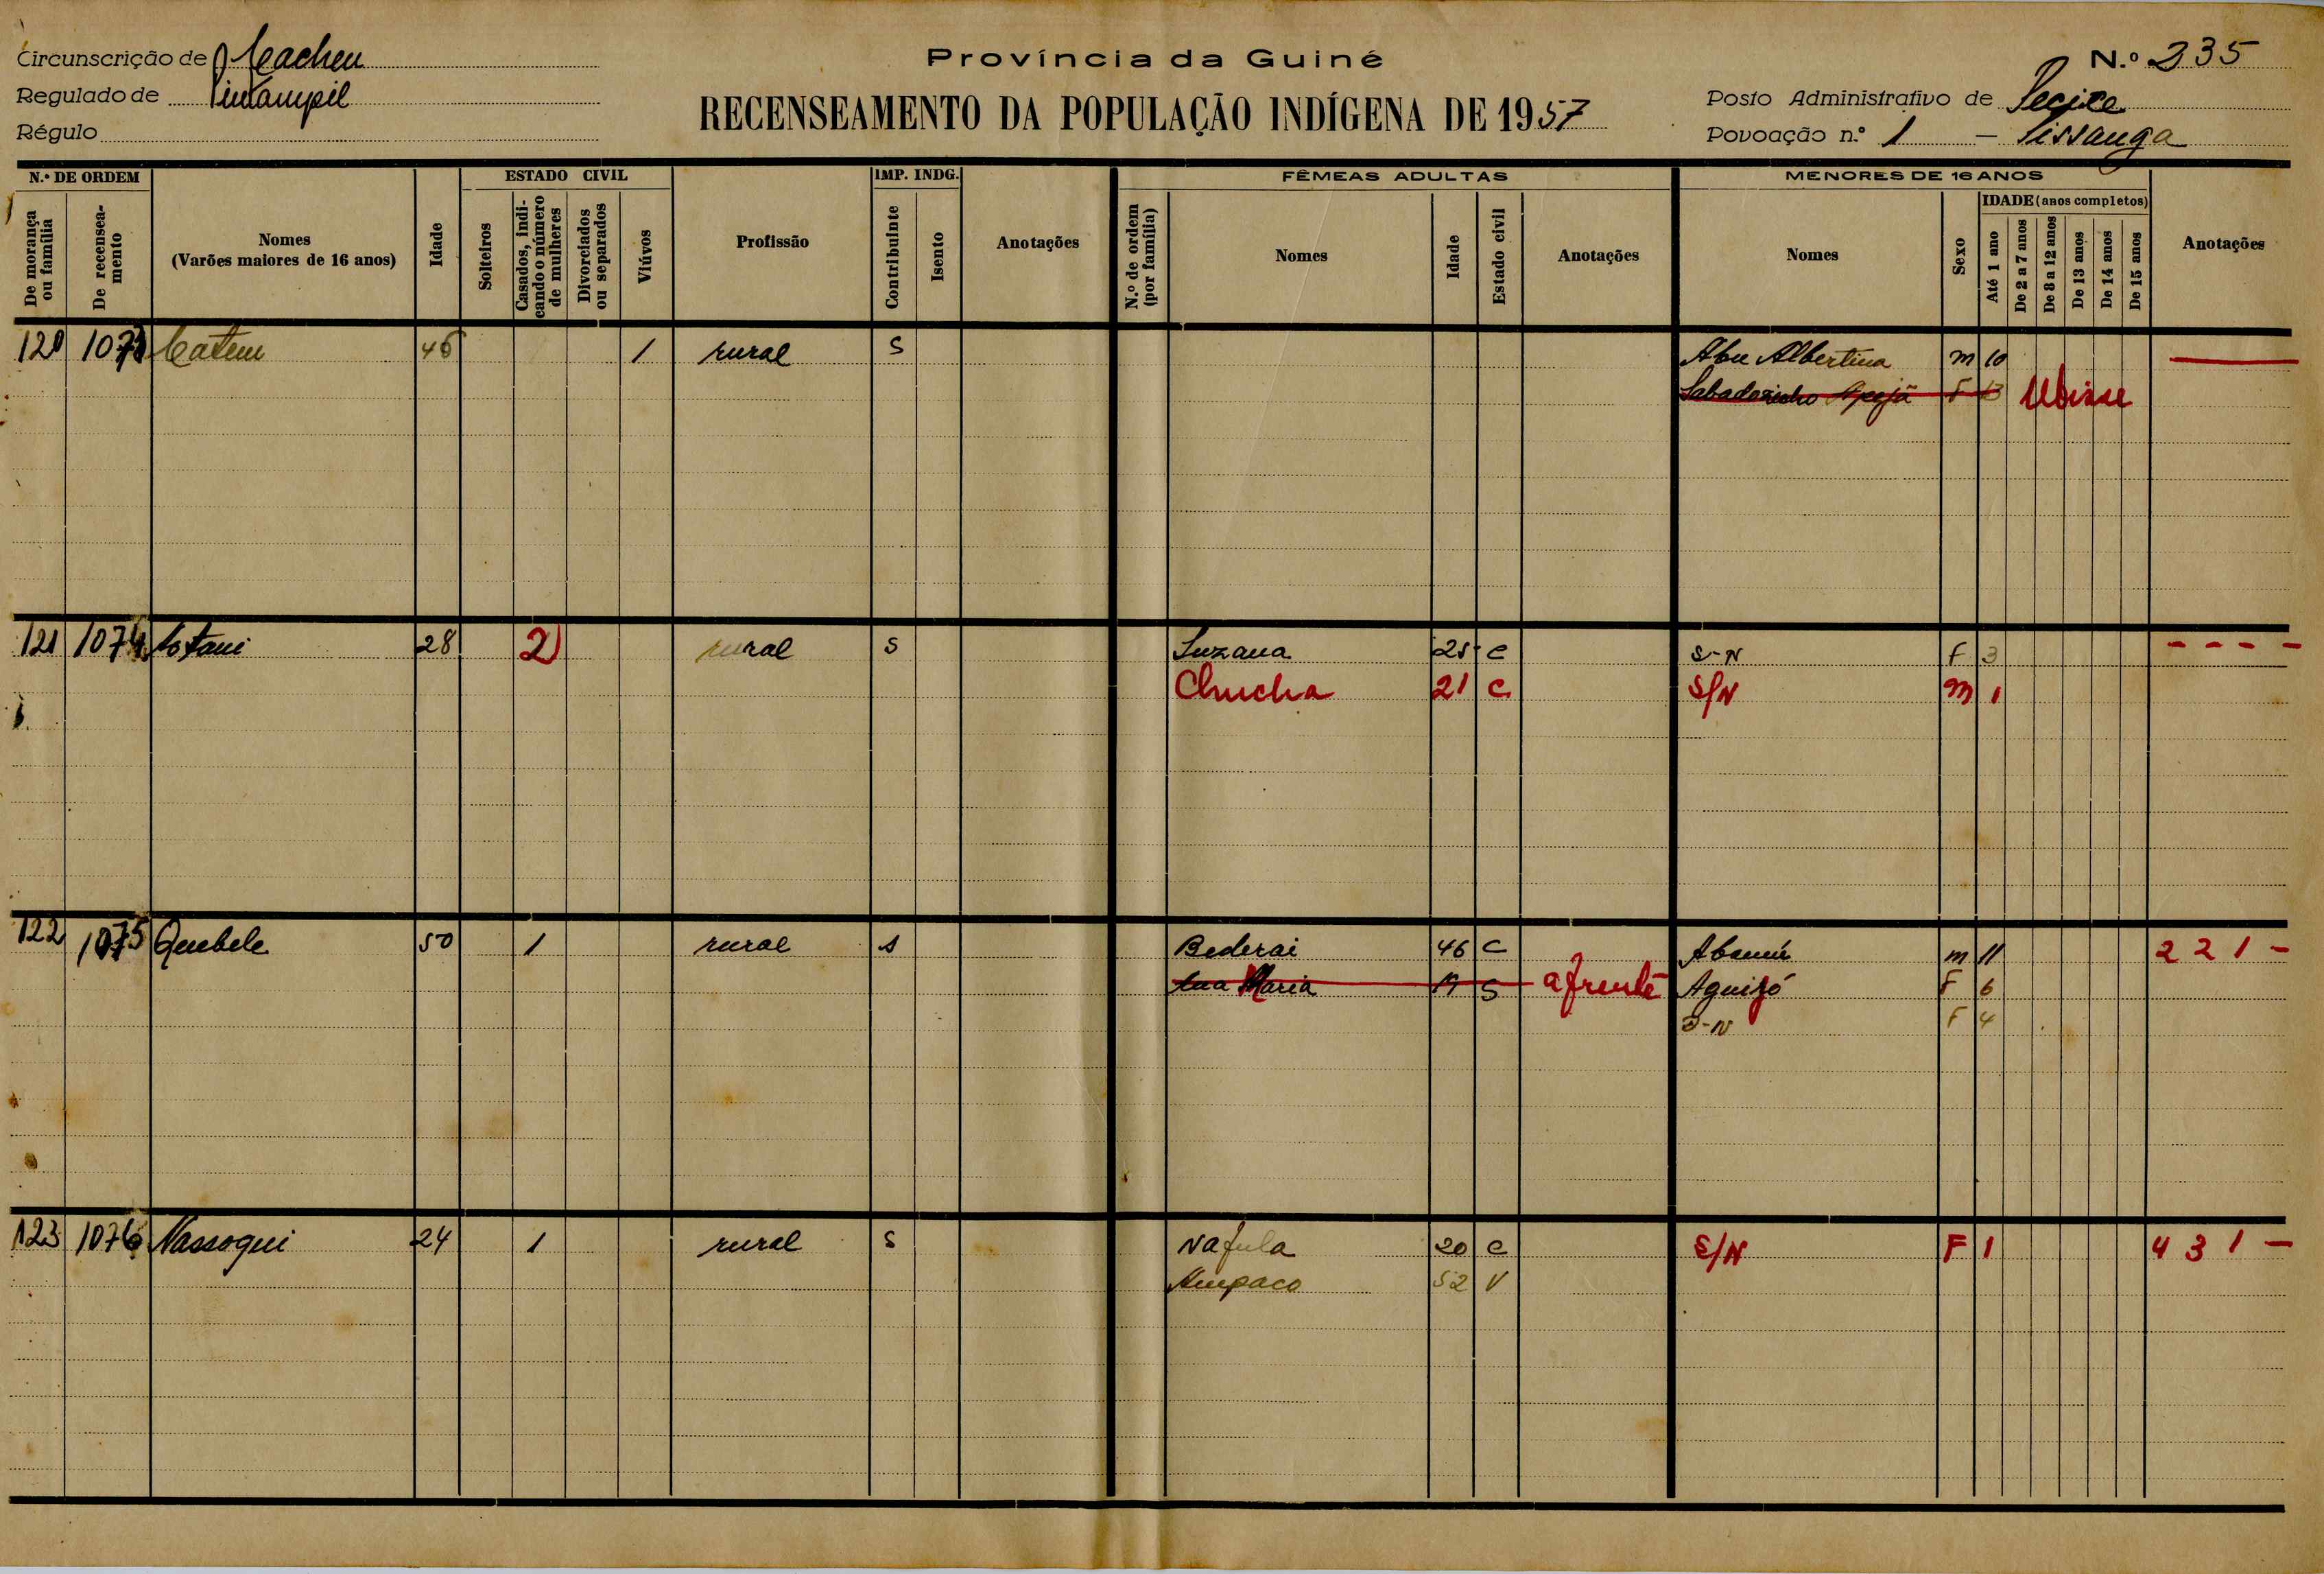 Circunscrição de Cacheu
Província da Guiné
N.º 235
Regulado de
RECENSEAMENTO DA POPULAÇÃO INDÍGENA DE 1957
Posto Administrativo de Pecixe
Régulo
Povoação n.º 1 —
N.º DE ORDEM
ESTADO CIVIL
IMP. INDG.
FÊMEAS ADULTAS
MENORES DE 16 ANOS
De morança ou família
De recenseamento
Nomes (Varões maiores de 16 anos)
Idade
Solteiros
Casados, indicando o número de mulheres
Divorciados ou separados
Viúvos
Profissão
Contribuinte
Isento
Anotações
N.º de ordem (por família)
Nomes
Idade
Estado civil
Anotações
Nomes
Sexo
IDADE (anos completos)
Até 1 ano
De 2 a 7 anos
De 8 a 12 anos
De 13 anos
De 14 anos
De 15 anos
Anotações
120 1073 Catem 46 1 rural S Abu Albertina m 10
F 13
121 1074 28 2 rural S Suzana 25 C S-N F 3 - - - -
Chucha 21 C S/N m 1
122 1075 Quebele 50 1 rural s Bederai 46 C m 11 2 2 1 -
Maria 19 S a frente F 6
S-N F 4
123 1076 Nassoqui 24 1 rural S Nafula 20 C S/N F 1 4 3 1 -
Ampaco 52 V